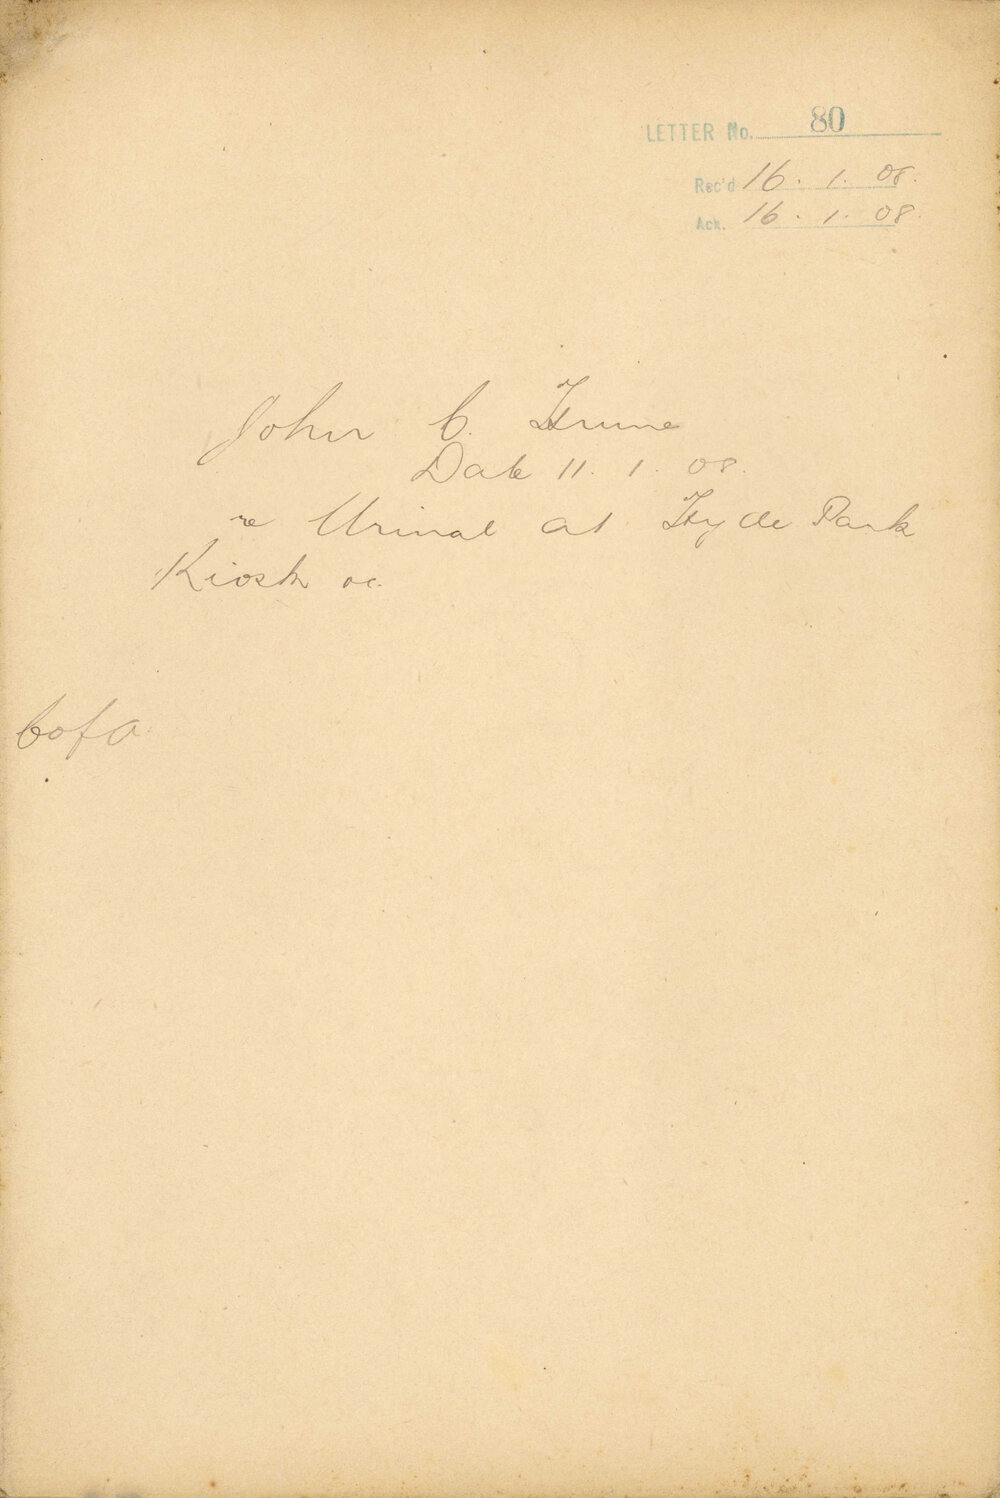 LETTER No. 80
Rec'd 16. 1. 08.
Ack. 16. 1. 08.
John C.
Date 11. 1. 08.
re Urinal at Hyde Park
Kiosk